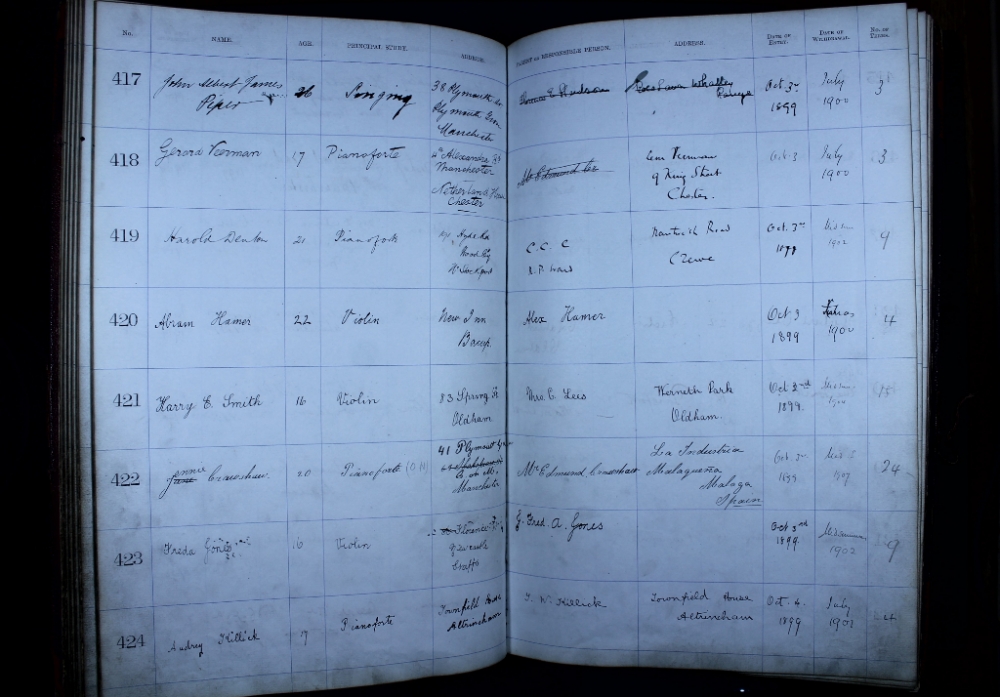 No. NAME. AGE. PRINCIPAL STUDY. ADDRESS. PARENT OR RESPONSIBLE PERSON. ADDRESS. DATE OF ENTRY. DATE OF WITHDRAWAL. NO. OF TERMS.
417 John Albert James 26 Singing 38 Plymouth Gr. Whalley Oct 3rd July 3
Piper Plymouth Grove Range 1899 1900
Manchester
418 Gerard Veerman 17 Pianoforte Alexandra Manchester
Netherlands House
Chester
Mr Edmund Cr
Veerman
9 King Street
Chester.
Oct 3 July 1900 3
419 Harold Denton 21 Pianoforte Hyde Rd
Woodley
Nr Stockport
C. C. C
Nantwich Road
Crewe
Oct. 3rd
1899
1902 9
420 Abram Hamer 22 Violin New Inn
Bacup
Alex Hamer
Oct 3
1899
1900 4
421 Harry E. Smith 16 Violin 83 Spring St
Oldham
Mrs. E. Lees
Werneth Park
Oldham.
Oct 3rd
1899.
422 Annie Crawshaw 20 Pianoforte 41 Plymouth Gr
Manchester
Mr Edmund Crawshaw
La Industria
Malagueña
Malaga
Spain
Oct. 3rd
1899
1907 24
423 Freda Jones 16 Violin Florence
Newcastle
Staffs
J. Fred. A. Jones
Oct 3rd
1899
Midsummer
1902 9
424 Audrey Killick 17 Pianoforte Townfield House
Altrincham
T. W. Killick
Townfield House
Altrincham
Oct. 4.
1899
July